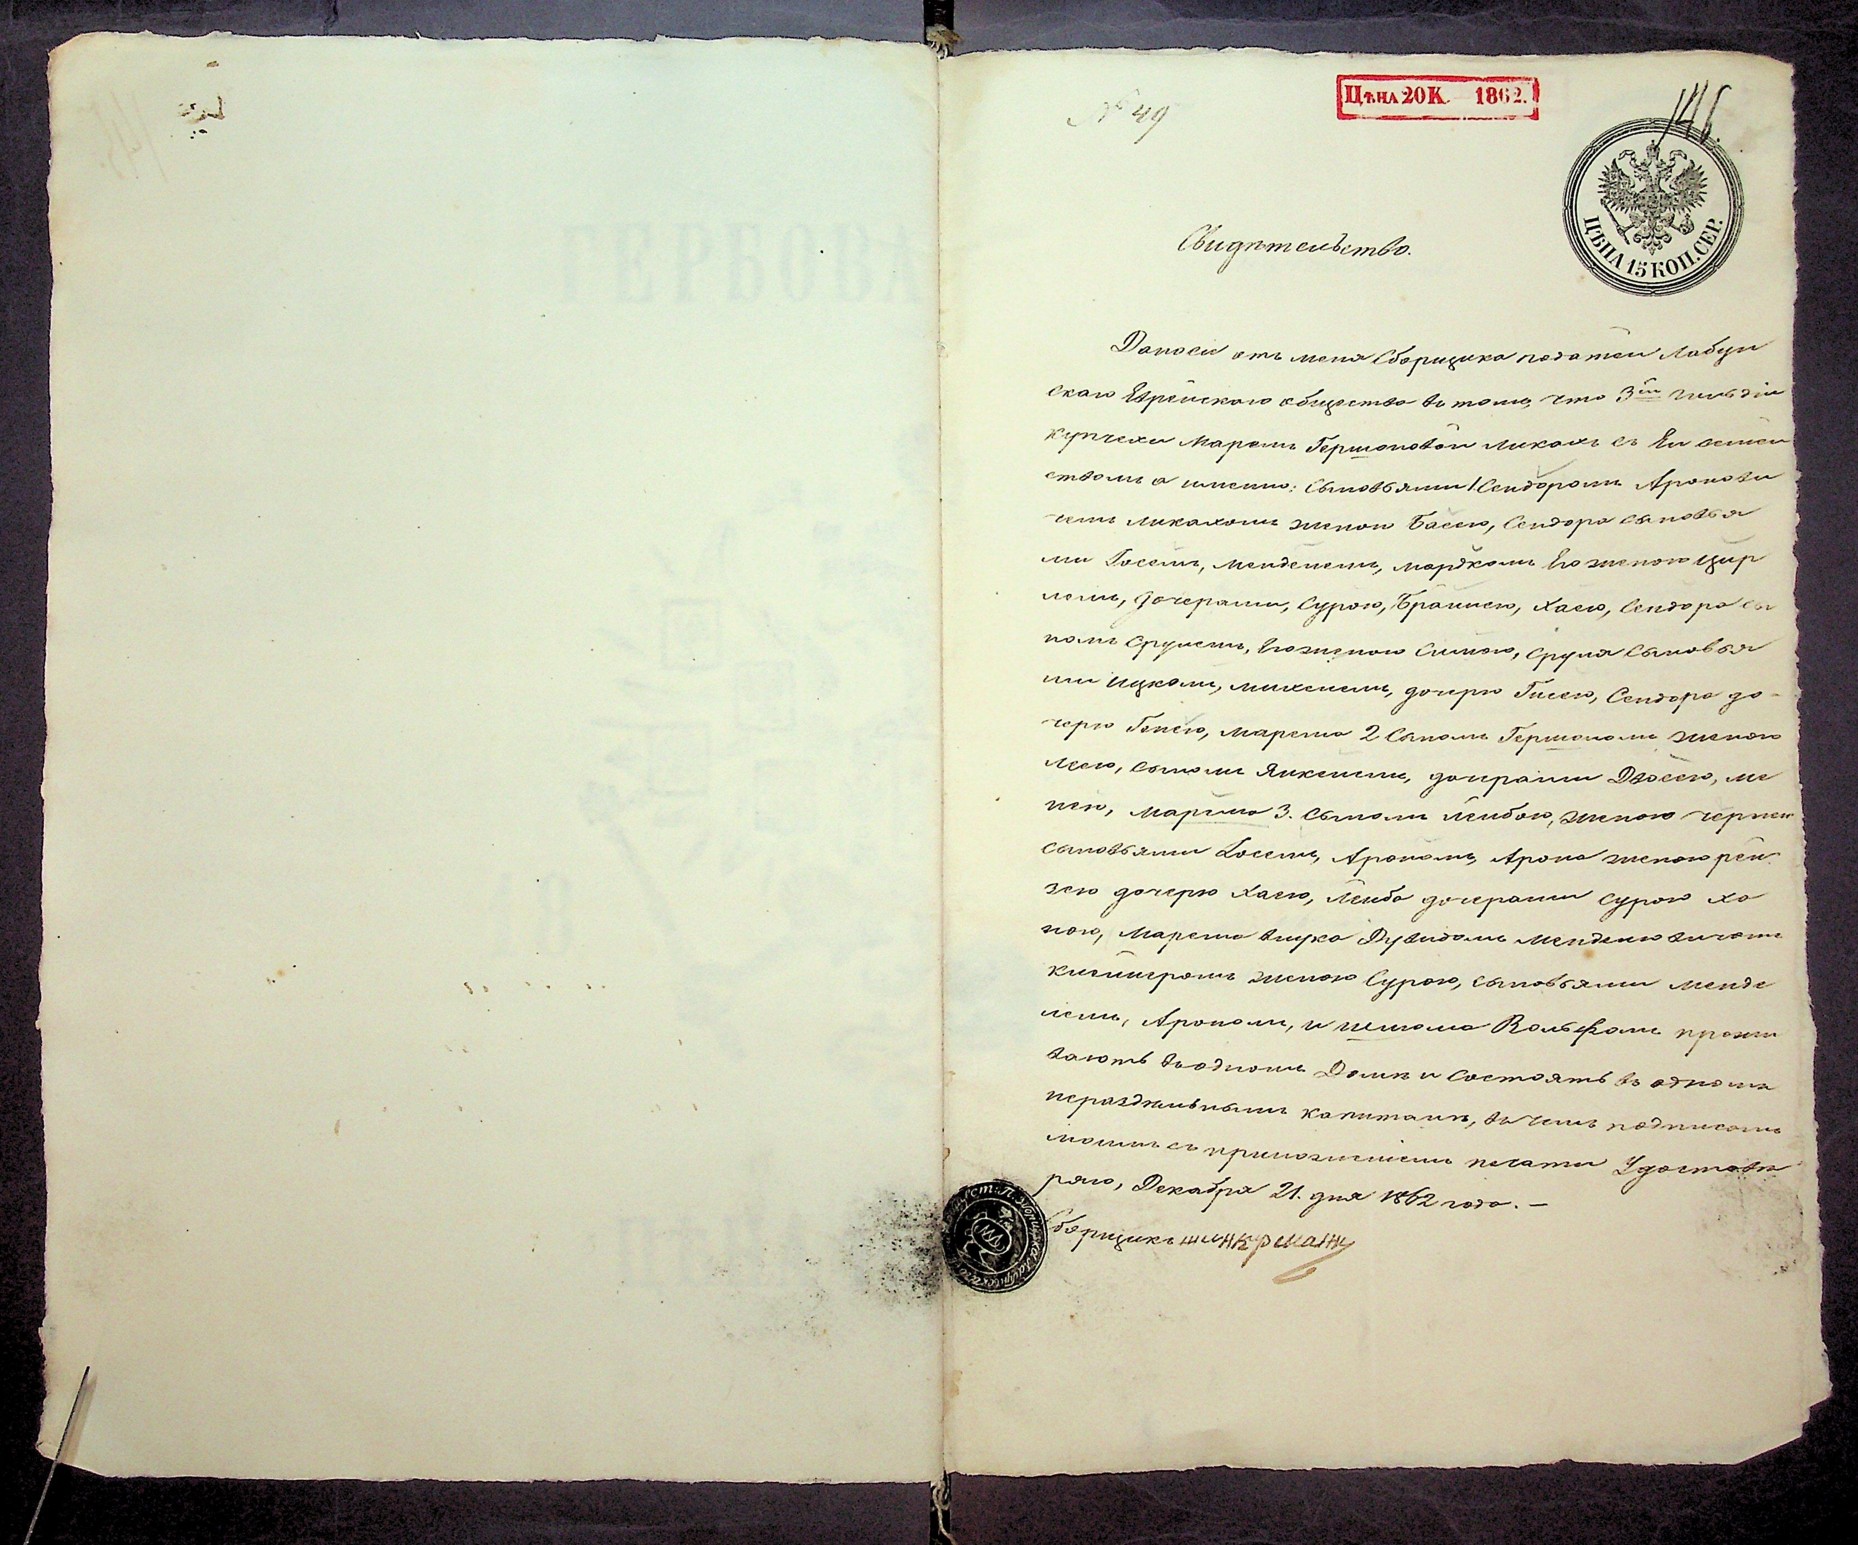 № 49
Цѣна 20 К. 1862.
146.
ЦѢНА 15 КОП. СЕР.
Свидѣтельство.
Даносеи отъ меня сборщика податеи Лабун
скаго Еврейского общества въ томъ, что 3ей гильдіи
купчехи Маремъ Гершоновой Ликахъ съ Ея семеи
ствомъ а именно: сыновьями 1 Сендоромъ Аронови
чемъ Ликахомъ женою Басею, Сендора сыновья
ми Іосемъ, Менделемъ, Мордкомъ Его женою Цир
лею, дочерами, Сурою, Брайнею, Хаею, Сендора сы
номъ Срулемъ, Его женою Симою, Сруля сыновья
ми Ицкомъ, Михелемъ, дочерю Гисею, Сендора до-
черю Генею, Марема 2 сыномъ Гершономъ женою
Леею, сыномъ Янкелемъ, дочерами Двосею, Ме
нею, Марема 3. сыномъ Лейбою, женою Чернею
сыновьями Іосемъ, Арономъ, Арона женою Рей
зею дочерю Хаею, Лейба дочерами Сурою Ха
ною, Марема внука Дувидомъ Менделювичемъ
женою Сурою, сыновьями Менде
лемъ, Арономъ, и Вольфомъ прожи
ваютъ въ одномъ Домѣ и состоятъ въ одномъ
нераздѣльнымъ капиталѣ, въ чемъ подписомъ
моимъ съ приложениемъ печати Удостовѣ
ряю, Декабря 21. дня 1862 года. —
Сборщикъ Шинкрманъ